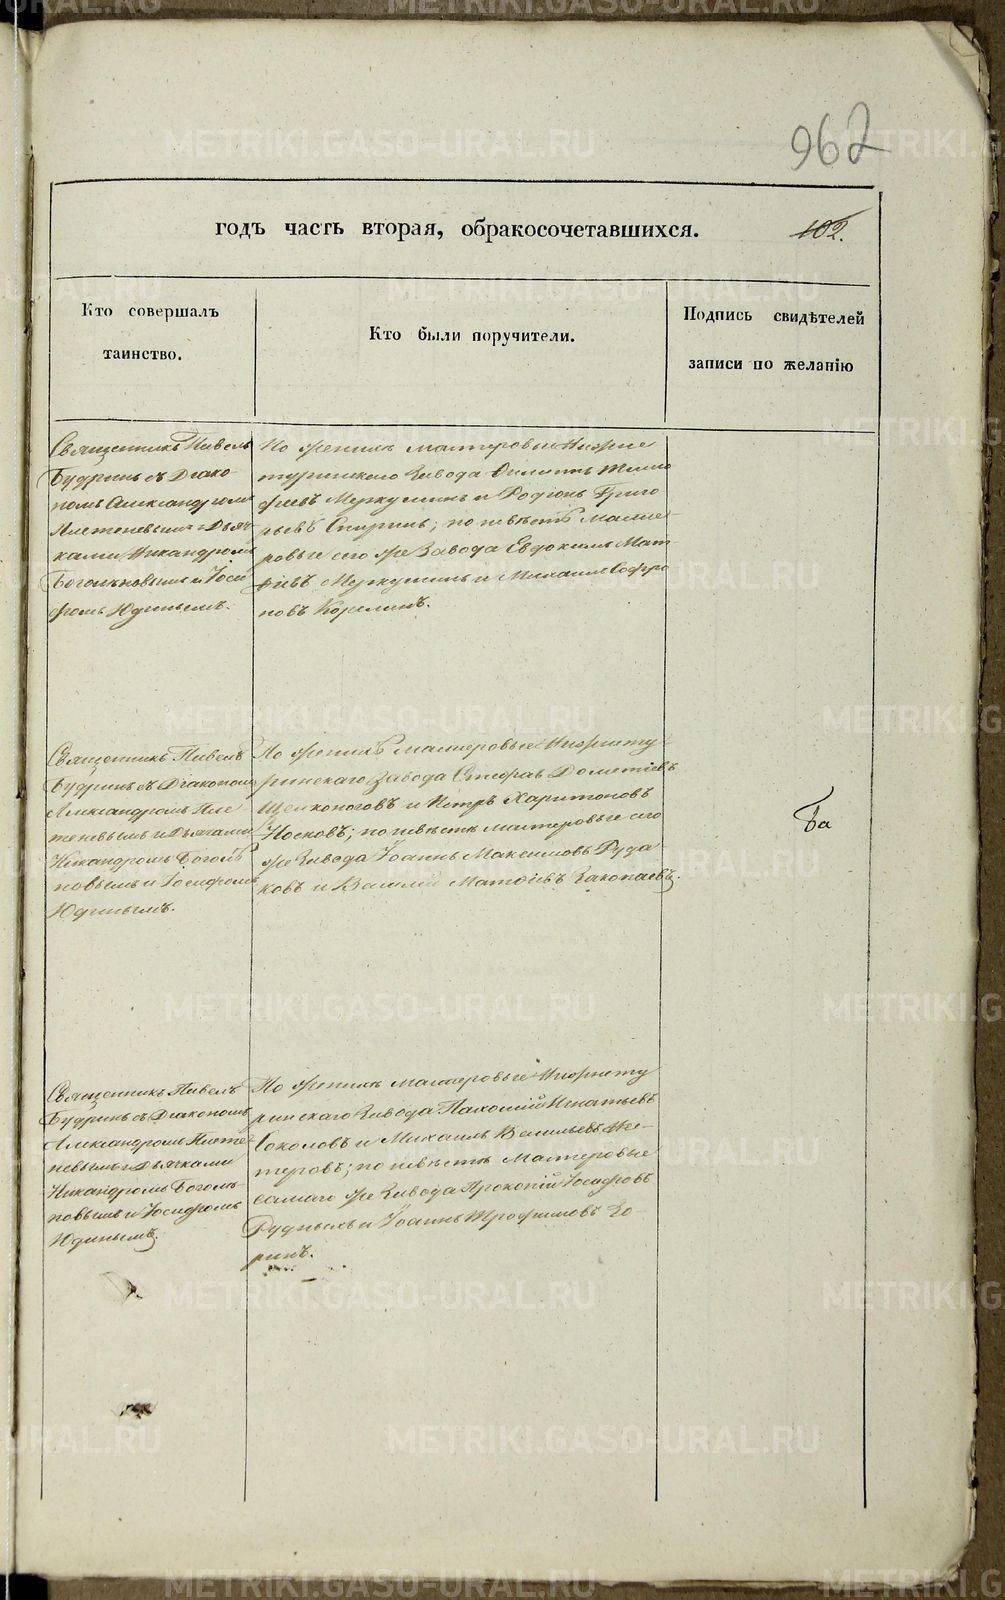 962
годъ часть вторая, обракосочетавшихся.
102.
Кто совершалъ
таинство.
Кто были поручители.
Подпись свидѣтелей
записи по желанію
Священникъ Павелъ
Будринъ съ Діако-
помъ Александромъ
Плетеневымъ и Дьяч-
ками Никандромъ
Боголѣповымъ и Іоси-
фомъ Юдинымъ.
По женихѣ мастеровые Нижне
туринскаго Завода Филиппъ Тимо
феевъ Меркушинъ и Родіонъ Григо
рьевъ Спиринъ; по невѣстѣ Масте-
ровые сего же Завода Евдокимъ Мат-
ѳіевъ Меркушинъ и Михаилъ Софро
новъ Корелинъ.
Священникъ Павелъ
Будринъ съ Діакономъ
Александромъ Пле
теневымъ и Дьячками
Никандромъ Боголѣ
повымъ и Іосифомъ
Юдинымъ.
По женихѣ мастеровые Нижнету
ринскаго Завода Стефанъ Дометіевъ
Щелконоговъ и Петръ Харитоновъ
Носковъ; по невѣстѣ мастеровые сего
же Завода Іоаннъ Максимовъ Руда
ковъ и Василій Матѳіевъ
Ба
Священникъ Павелъ
Будринъ съ Діакономъ
Александромъ Плете-
невымъ и Дьячками
Никандромъ Боголѣ-
повымъ и Іосифомъ
Юдинымъ.
По женихѣ мастеровые Нижнету
ринскаго Завода Пахомій Игнатьевъ
Соколовъ и Михаилъ Васильевъ
теровъ; по невѣстѣ Мастеровые
самаго же Завода Прокопій Іосифовъ
Рудныхъ и Іоаннъ Трофимовъ Зо-
ринъ.
METRIKI.GASO-URAL.RU